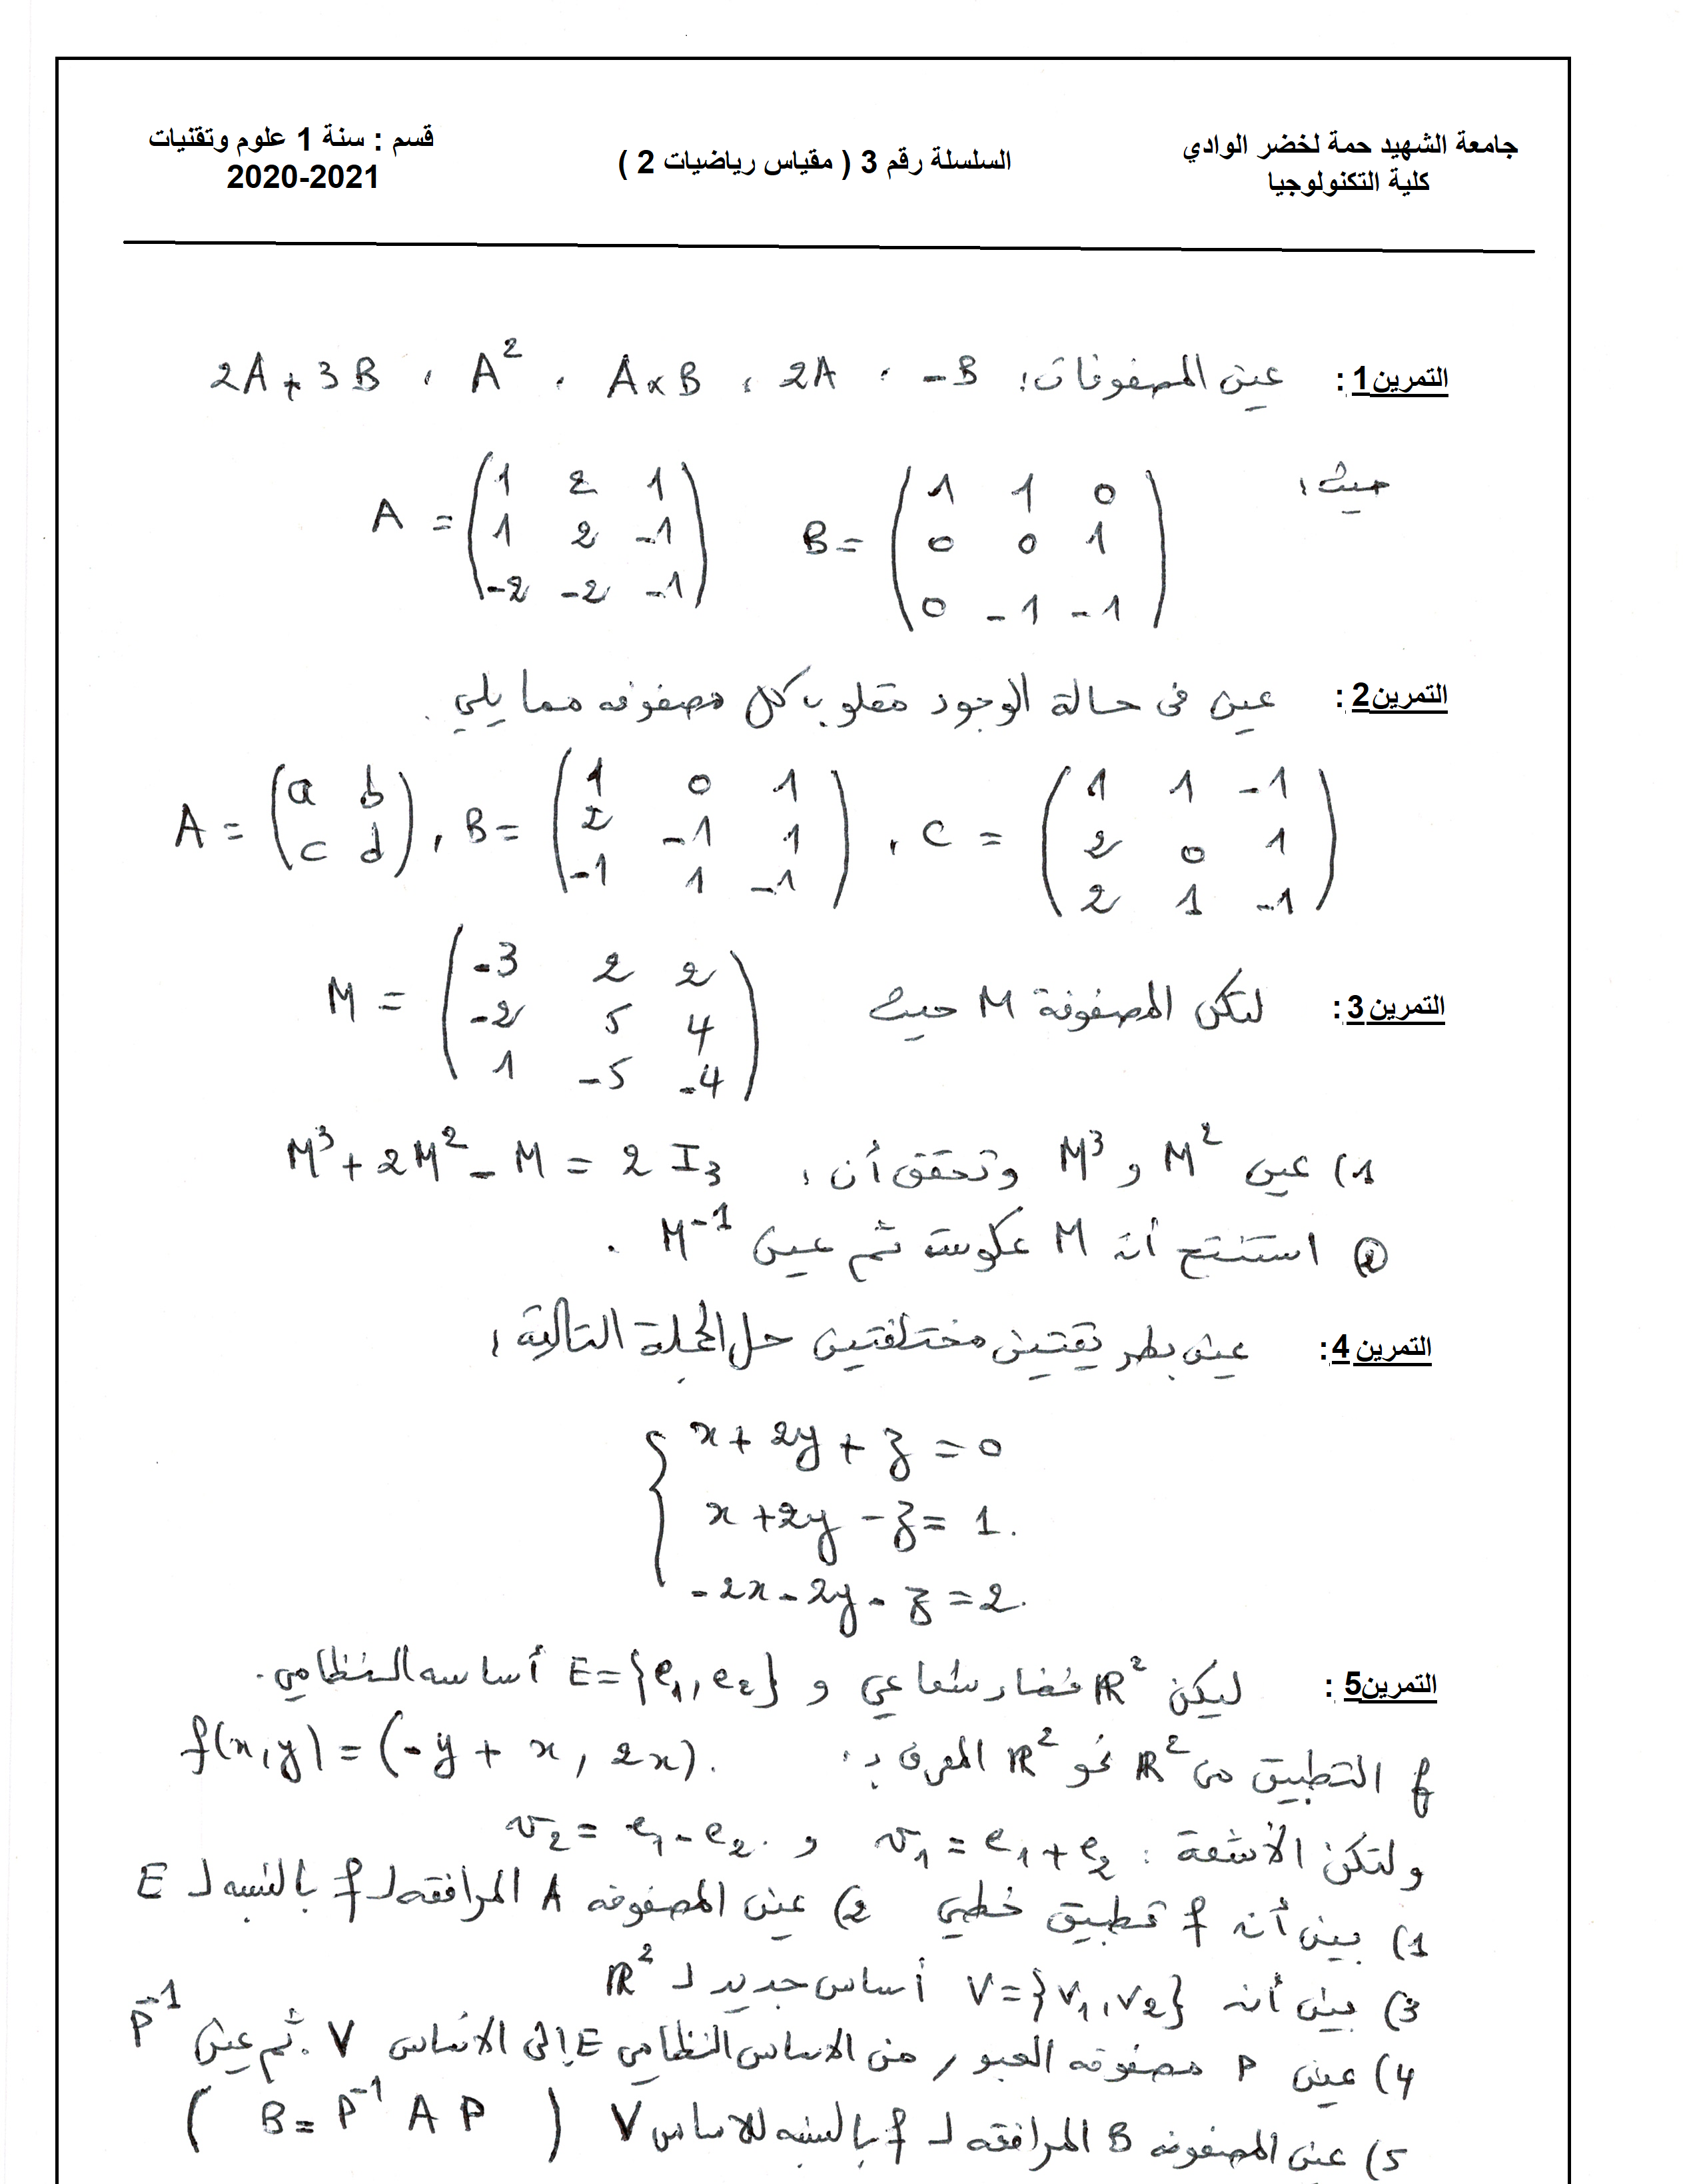 جامعة الشهيد حمة لخضر الوادي
كلية التكنولوجيا
السلسلة رقم 3 ( مقياس رياضيات 2 )
قسم : سنة 1 علوم وتقنيات
2020-2021
التمرين1 : عين المصفوفات: 2A+3B ، A² ، A×B ، 2A ، -B
حيث:
A = (1 2 1
1 2 -1
-2 -2 -1)
B = (1 1 0
0 0 1
0 -1 -1)
التمرين2 : عين فى حالة الوجود مقلوب كل مصفوفه مما يلي .
A = (a b
c d) ,
B = (1 0 1
2 -1 1
-1 1 -1) ,
C = (1 1 -1
2 0 1
2 1 -1)
التمرين3 : لتكن المصفوفة M حيث
M = (-3 2 2
-2 5 4
1 -5 -4)
1) عين M² و M³ وتحقق أن : M³ + 2M² - M = 2 I₃
2) استنتج أن M عكوست ثم عين M⁻¹ .
التمرين 4: عين بطريقتين مختلفتين حل الجملة التالية :
{ x + 2y + z = 0
x + 2y - z = 1.
-2x - 2y - z = 2.
التمرين5 : ليكن ℝ² فضاء شعاعي و E={e₁,e₂} أساسه النظامي.
f التطبيق من ℝ² نحو ℝ² المعرف بـ: f(x,y) = (-y + x, 2x).
ولتكن الأشعة : v₁ = e₁+e₂ و v₂ = e₁-e₂.
1) بين أن f تطبيق خطي 2) عين المصفوفه A المرافقه لـ f بالنسبه لـ E
3) بين أن V={v₁,v₂} أساس جديد لـ ℝ²
4) عين P مصفوفه العبور من الاساس النظامي E إلى الاساس V . ثم عين P⁻¹
5) عين المصفوفه B المرافقه لـ f بالنسبه للاساس V ( B = P⁻¹ A P )